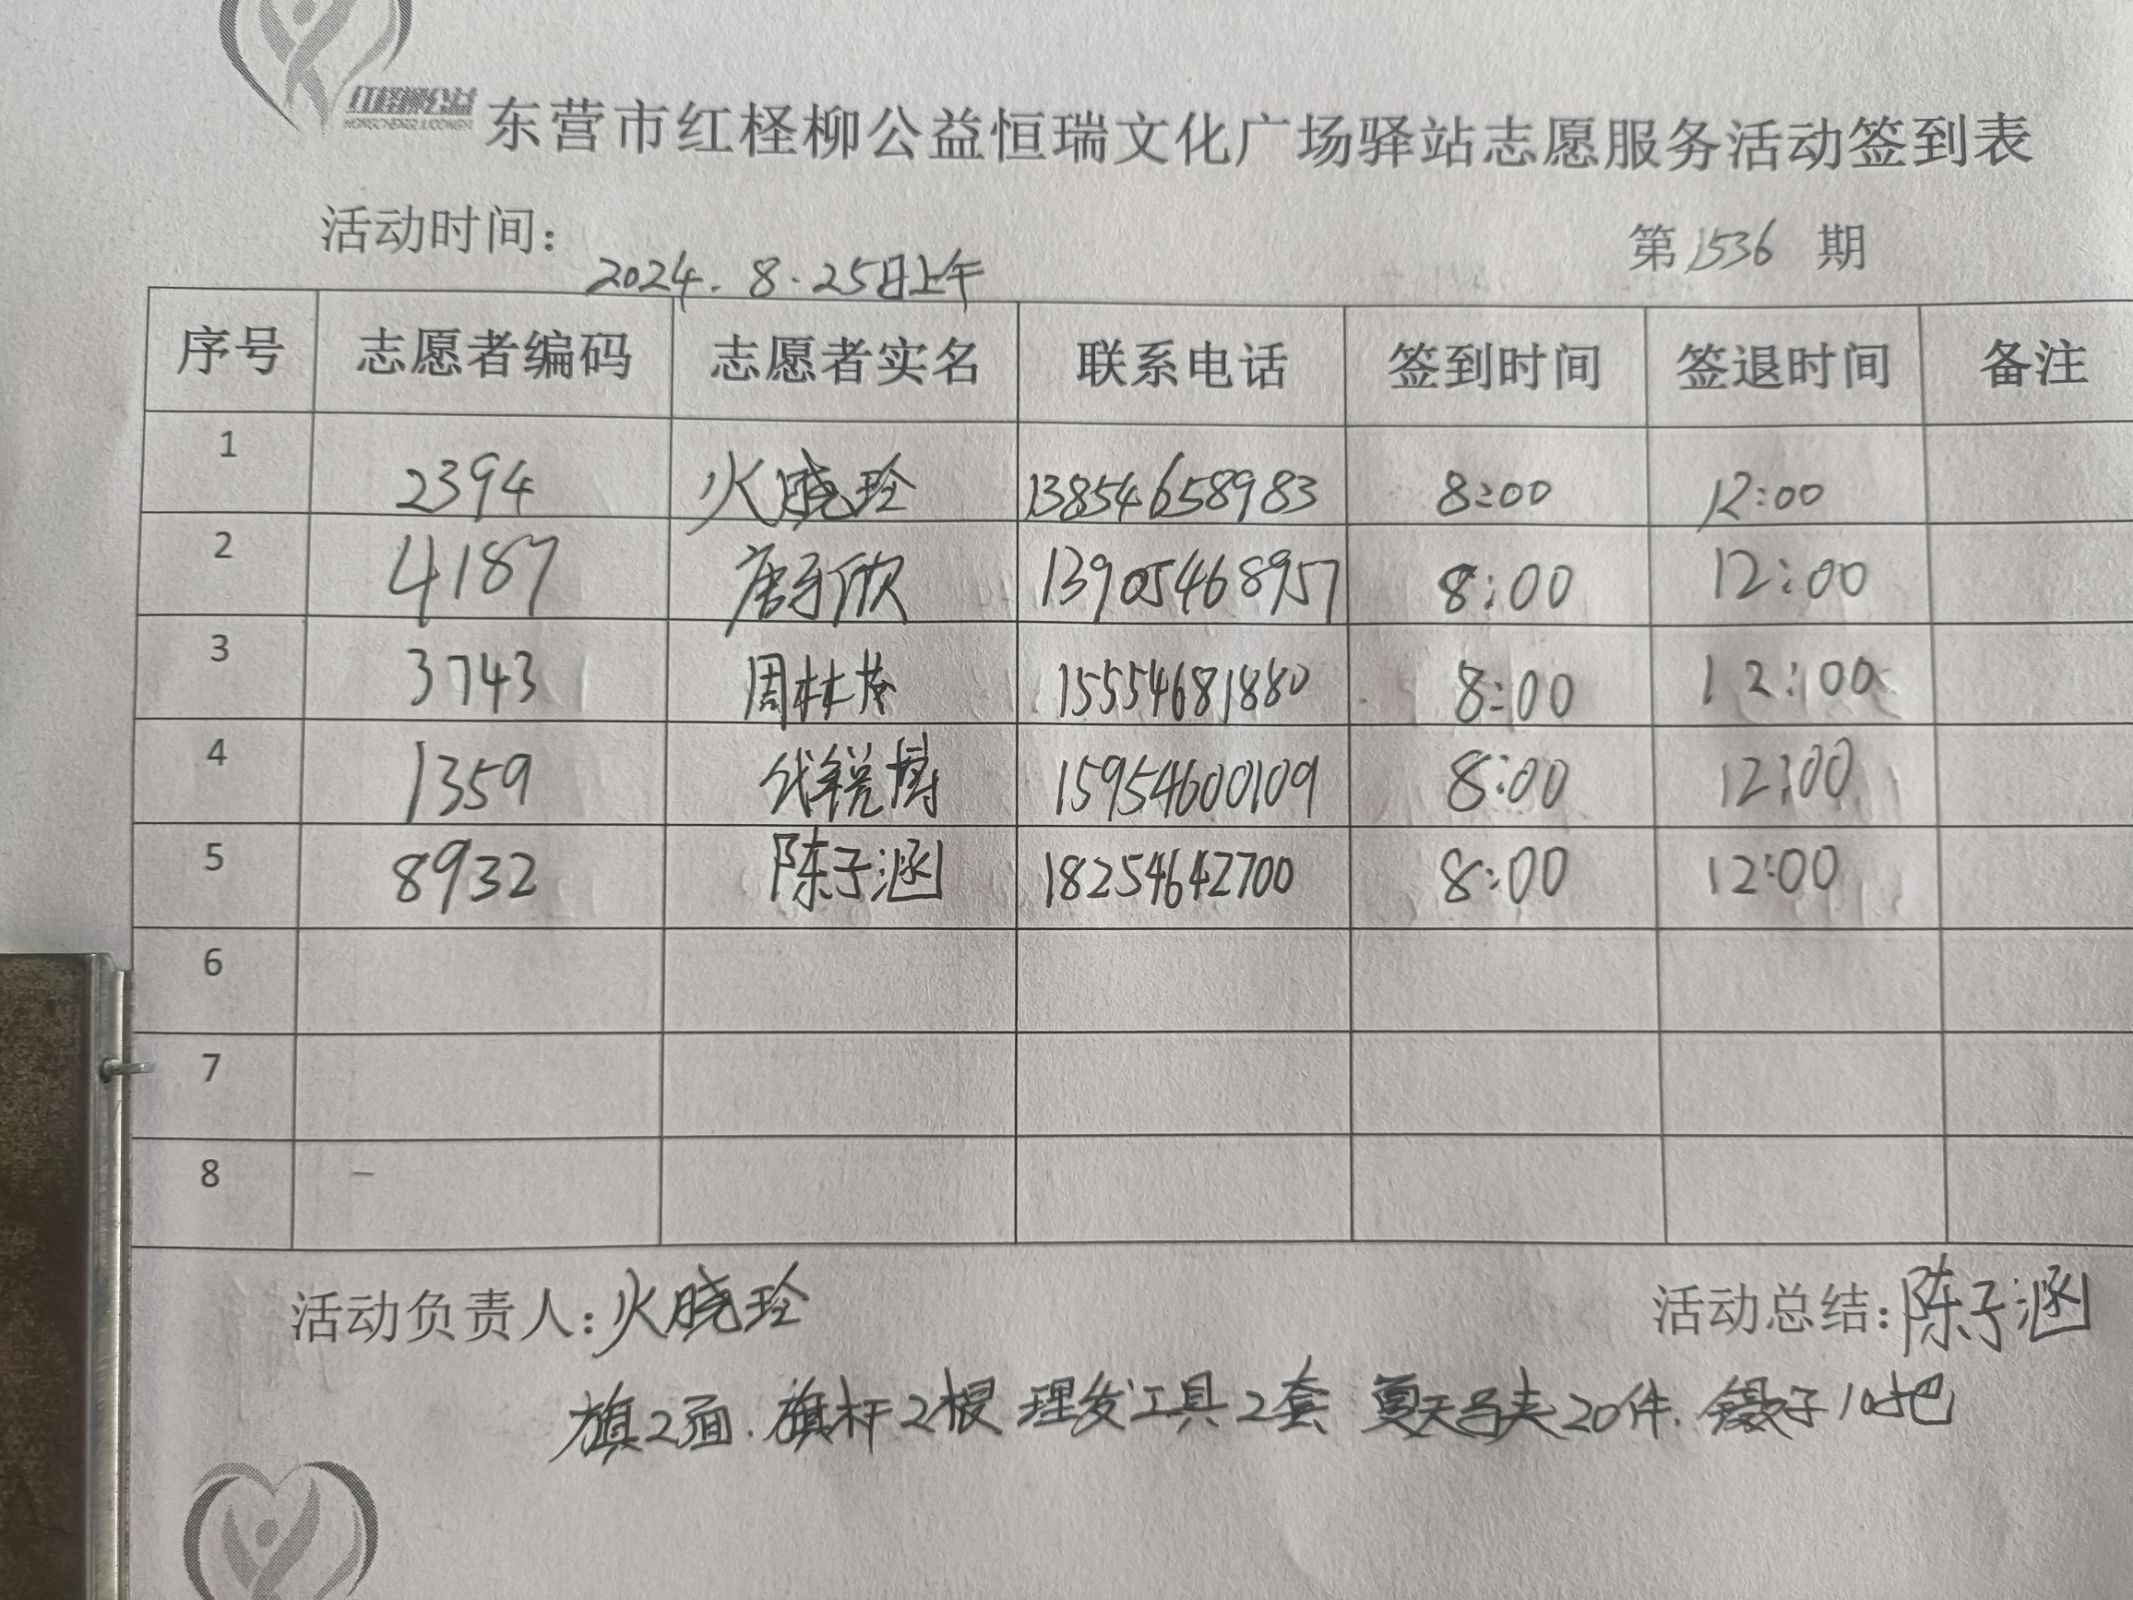 红柽柳公益
东营市红柽柳公益恒瑞文化广场驿站志愿服务活动签到表
活动时间：2024.8.25日上午 第1536期
序号 志愿者编码 志愿者实名 联系电话 签到时间 签退时间 备注
1 2394 火晓玲 13854658983 8:00 12:00
2 4187 唐子欣 13905468957 8:00 12:00
3 3743 周林茂 15554681880 8:00 12:00
4 1359 代锐博 15954600109 8:00 12:00
5 8932 陈子涵 18254642700 8:00 12:00
6
7
8 -
活动负责人：火晓玲 活动总结：陈子涵
旗2面.旗杆2根 理发工具2套 夏天马夹20件.镊子10把